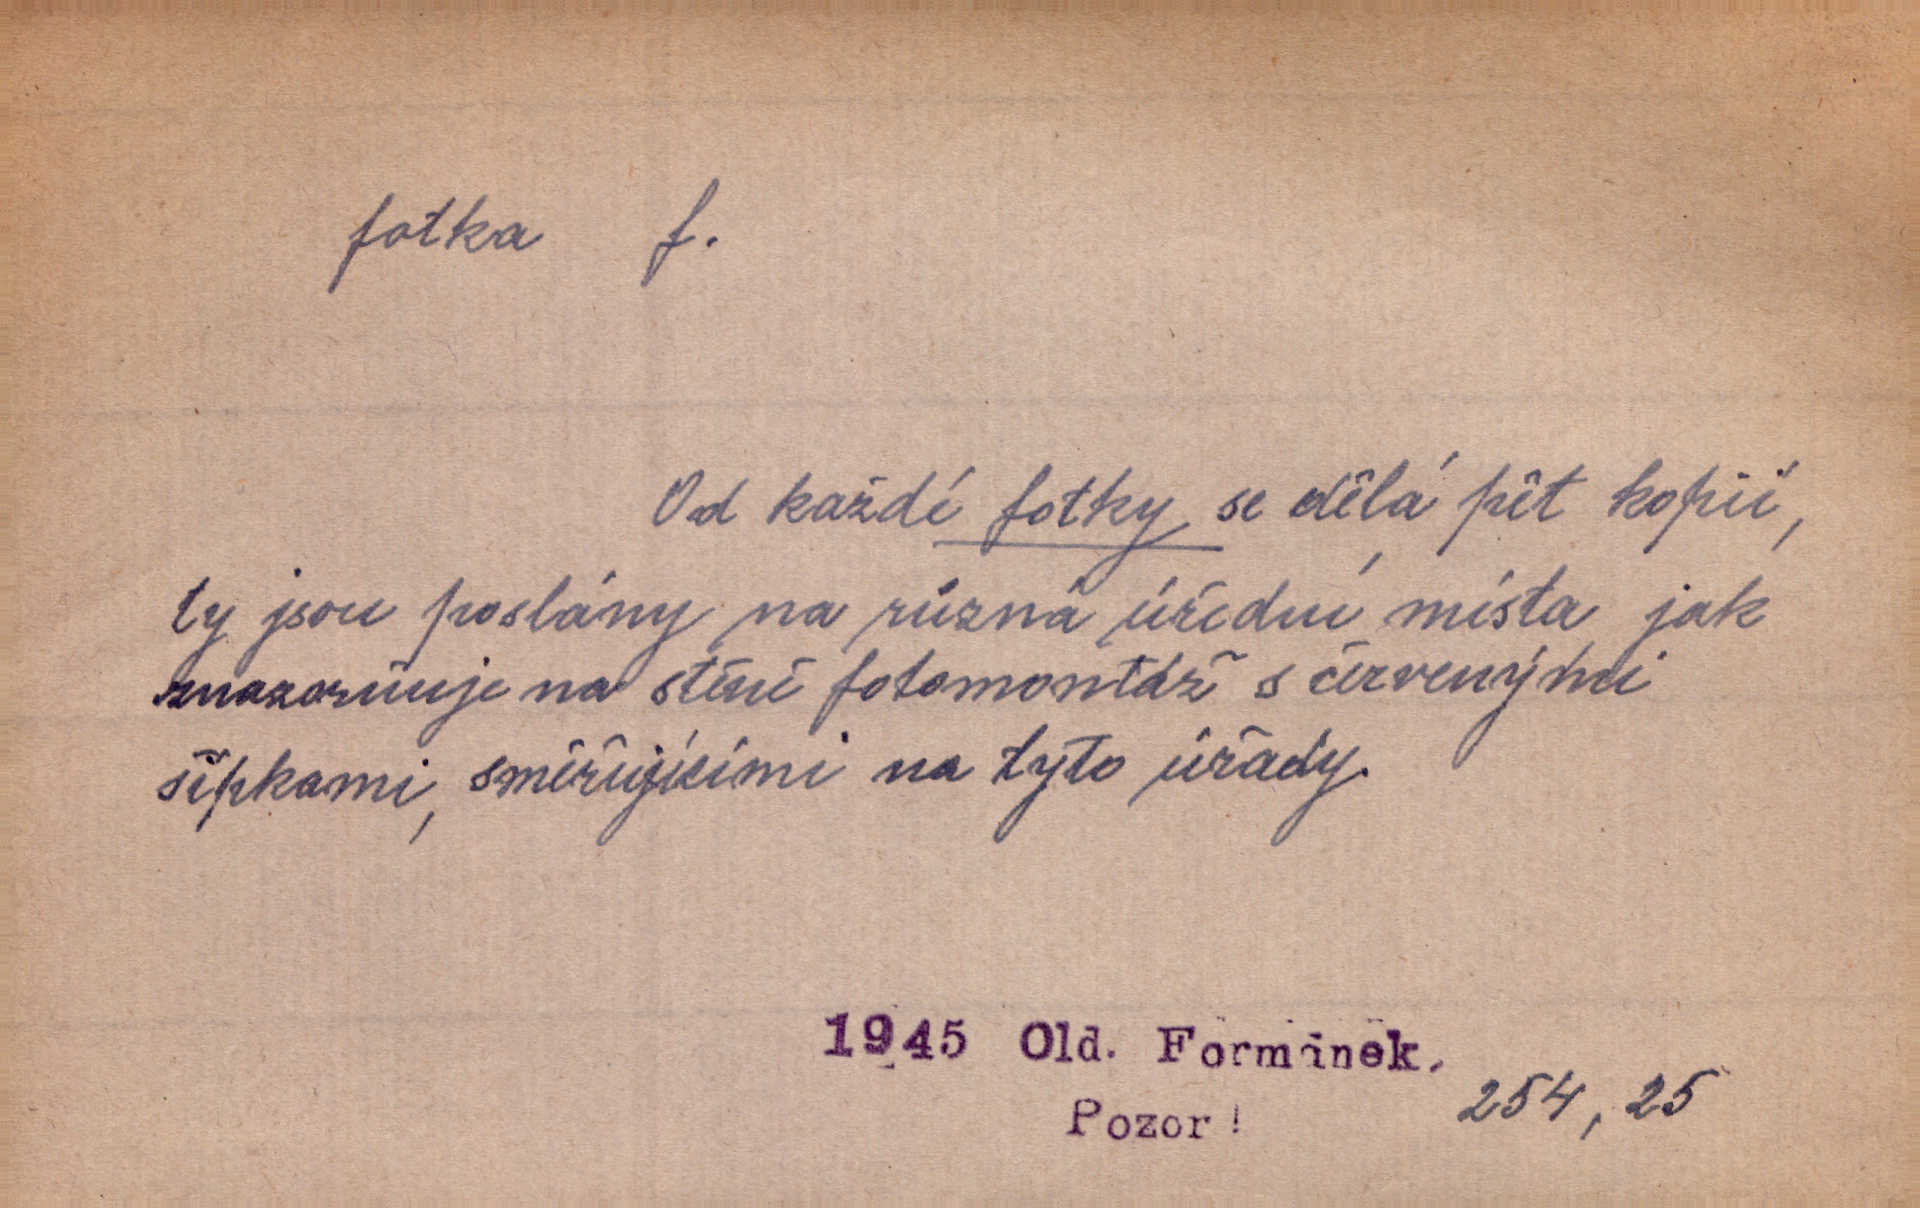 fotka f.
Od každé fotky se dělá pět kopií,
ty jsou poslány na různá úřední místa jak
znázorňuje na stěně fotomontáž s červenými
šipkami, směřujícími na tyto úřady.
1945 Old. Formánek.
Pozor!
254, 25